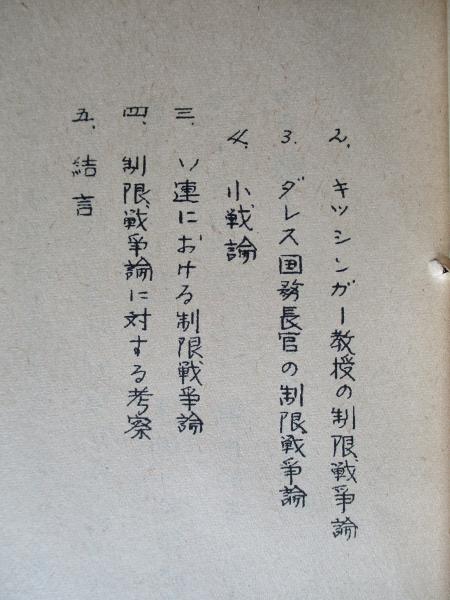 2. キッシンガー教授の制限戦争論
3. ダレス国務長官の制限戦争論
4. 小戦論
三. ソ連における制限戦争論
四. 制限戦争論に対する考察
五. 結言